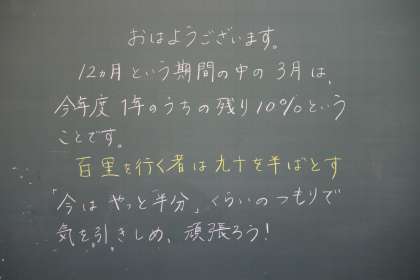 おはようございます。
12ヵ月という期間の中の3月は、
今年度1年のうちの残り10%という
ことです。
百里を行く者は九十を半ばとす
「今はやっと半分」くらいのつもりで
気を引きしめ、頑張ろう!